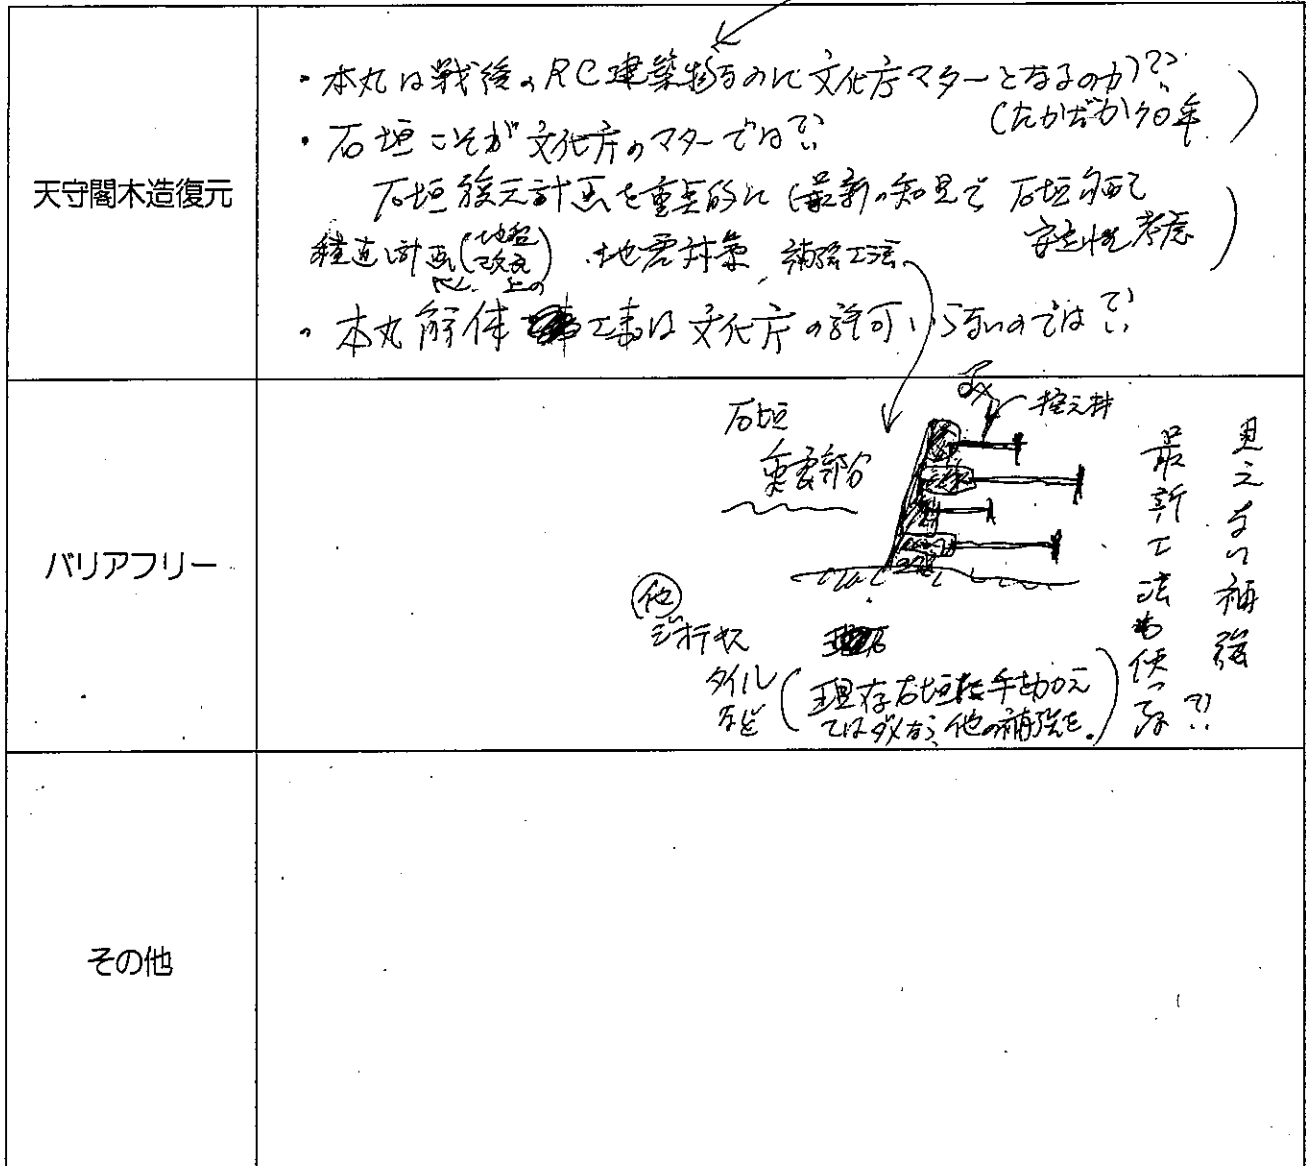 天守閣木造復元
・本丸は戦後のRC建築物なのに文化庁マターとなるのか??
(たかだか70年)
・石垣こそが文化庁のマターでは?!
石垣復元計画を重点的に(最新の知見で 石垣
安定性考慮)
積直し計画(地盤改良 上の) 地震対策、補強工法
・本丸解体工事は文化庁の許可いらないのでは?!
バリアフリー
石垣
重要部分
控え材
見えない補強
最新工法も使っては?!
他
ジオテキス
タイル
など
(現存石垣に手を加え
てはダメなら、他の補強を。)
その他